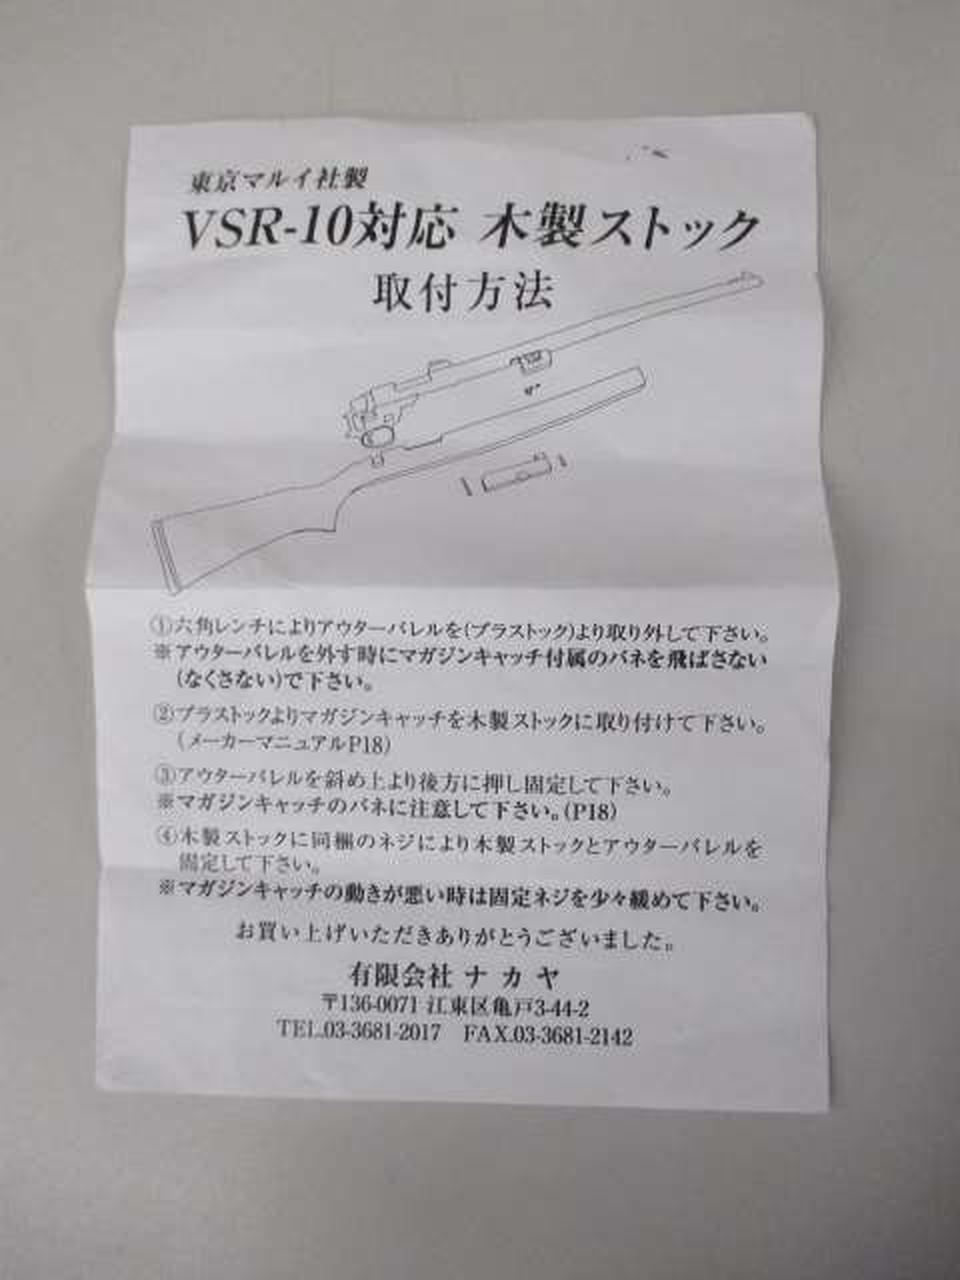 東京マルイ社製
VSR-10対応 木製ストック
取付方法
①六角レンチによりアウターバレルを(プラストック)より取り外して下さい。
※アウターバレルを外す時にマガジンキャッチ付属のバネを飛ばさない
(なくさない)で下さい。
②プラストックよりマガジンキャッチを木製ストックに取り付けて下さい。
(メーカーマニュアルP18)
③アウターバレルを斜め上より後方に押し固定して下さい。
※マガジンキャッチのバネに注意して下さい。(P18)
④木製ストックに同梱のネジにより木製ストックとアウターバレルを
固定して下さい。
※マガジンキャッチの動きが悪い時は固定ネジを少々緩めて下さい。
お買い上げいただきありがとうございました。
有限会社 ナカヤ
〒136-0071 江東区亀戸3-44-2
TEL.03-3681-2017 FAX.03-3681-2142